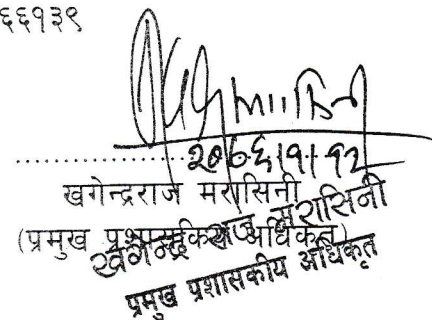 ६६१३९
२०७६।११।१२
खगेन्द्रराज मरासिनी
(प्रमुख प्रशासकीय अधिकृत)
खगेन्द्रराज मरासिनी
प्रमुख प्रशासकीय अधिकृत